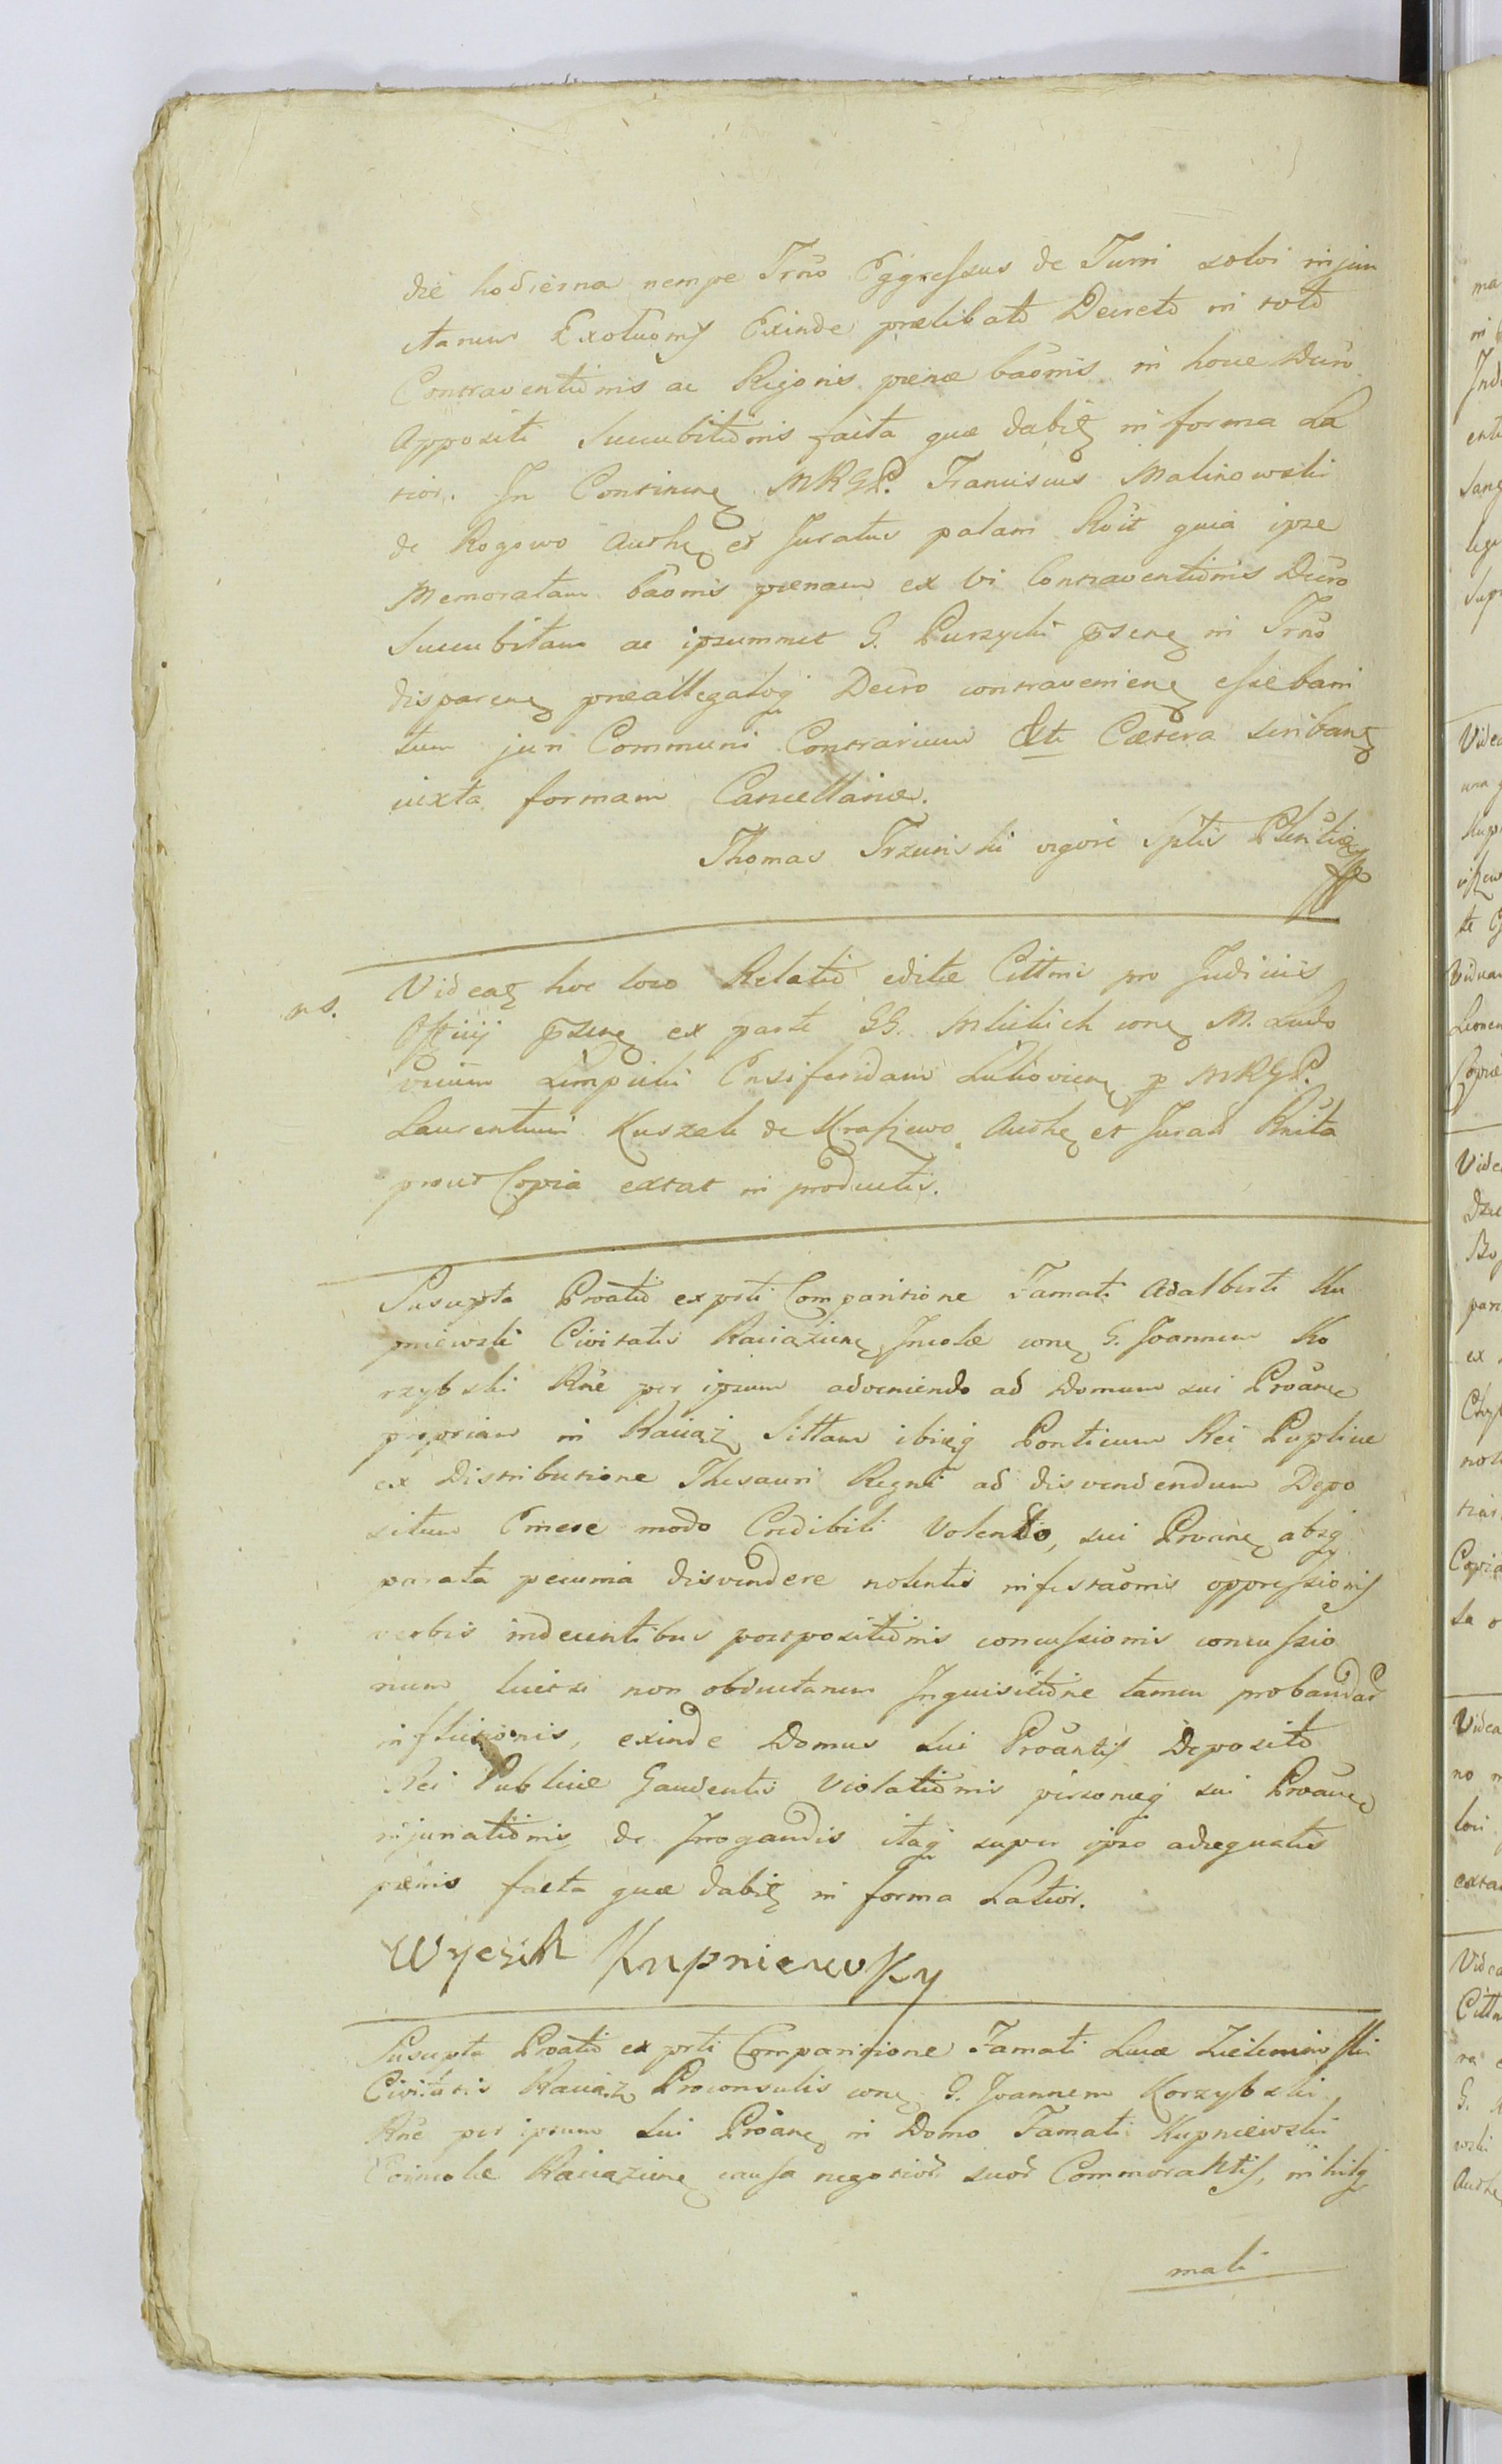 die hodierna nempe Trno Eggressus de Turri solvi injun
ctarum Exolvoms Exinde prælibato Decreto in toto
Contraventionis ac Rejonis pænæ baomis in hocce Decro
Appositi Succubitionis facta quæ dabitz in forma La
tior. In Continenz MRGP. Franciscus Malinowski
de Rogowo Authz et Juratus palam Roit quia ipse
Memoratam baomis pænam ex vi Contraventionis Decro
Succubitam ac ipsummet G. Purzycki psenz in Trno
disparenz præallegatoq Decro contravenienz essebam
tum juri Communi Contrarium Etc Cætera scribanz
iuxta formam Cancellariæ.
Thomas Trzcinski vigore sptis Pltntiæ
ns.
Videaz hoc loco Relatio editæ Cittnis pro Judiciis
Officij psenz ex parte GG. Mlickich conz M. Ludo
vicum Lempicki Ensiferidam Lukovienz p MRGP.
Laurentium Kuszela de Kraszewo Authz et Jurat Rnita
prout Copia extat in productis.
Suscepta Proatio ex prti Comparitione Famati Adalberti Ku
pniewski Civitatis Raciązienz Incolæ conz G. Joannem Ko
rzybski Rne per ipsum adveniendo ad Domum sui Proanz
propriam in Raciąz Sittam ibiq Ponticum Rei Puplicæ
ex Distributione Thesauri Regni ad disvendendum Depo
situm Emere modo Credibili Volendo, sui Proanz absq
parata pecunia disvendere nolentis infestaomis oppressionis
verbis indecentibus porpositionis concussionis concussio
num licitsi non obductarum Inquisitione tamen probandar
inflictionis, exinde Domus sui Proantis Deposito
Rei Publicæ Gaudentis Violationis personæq sui Proanz
injuriationis de Irrogandis itaq super ipso adæquatis
pænis facta quæ dabitz in forma Latior.
Wycich Kupniewsky
Suscepta Proatio ex prti Comparitione Famati Lucæ Zieleninski
Civitatis Raciąz Proconsulis conz G. Joannem Korzybski
Rne per ipsum sui Proanz in Domo Famati Kupniewski
Coincolæ Raciązienz causa negotior suor Commorantis, nihilq
mali